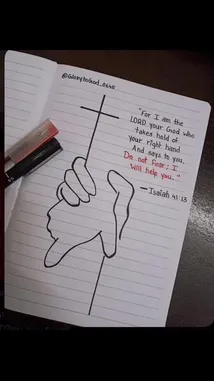 @GlorytoGod_4evs
"For I am the
LORD your God who
takes hold of
your right hand
And says to you,
Do not Fear; I
Will help you."
— Isaiah 41:13